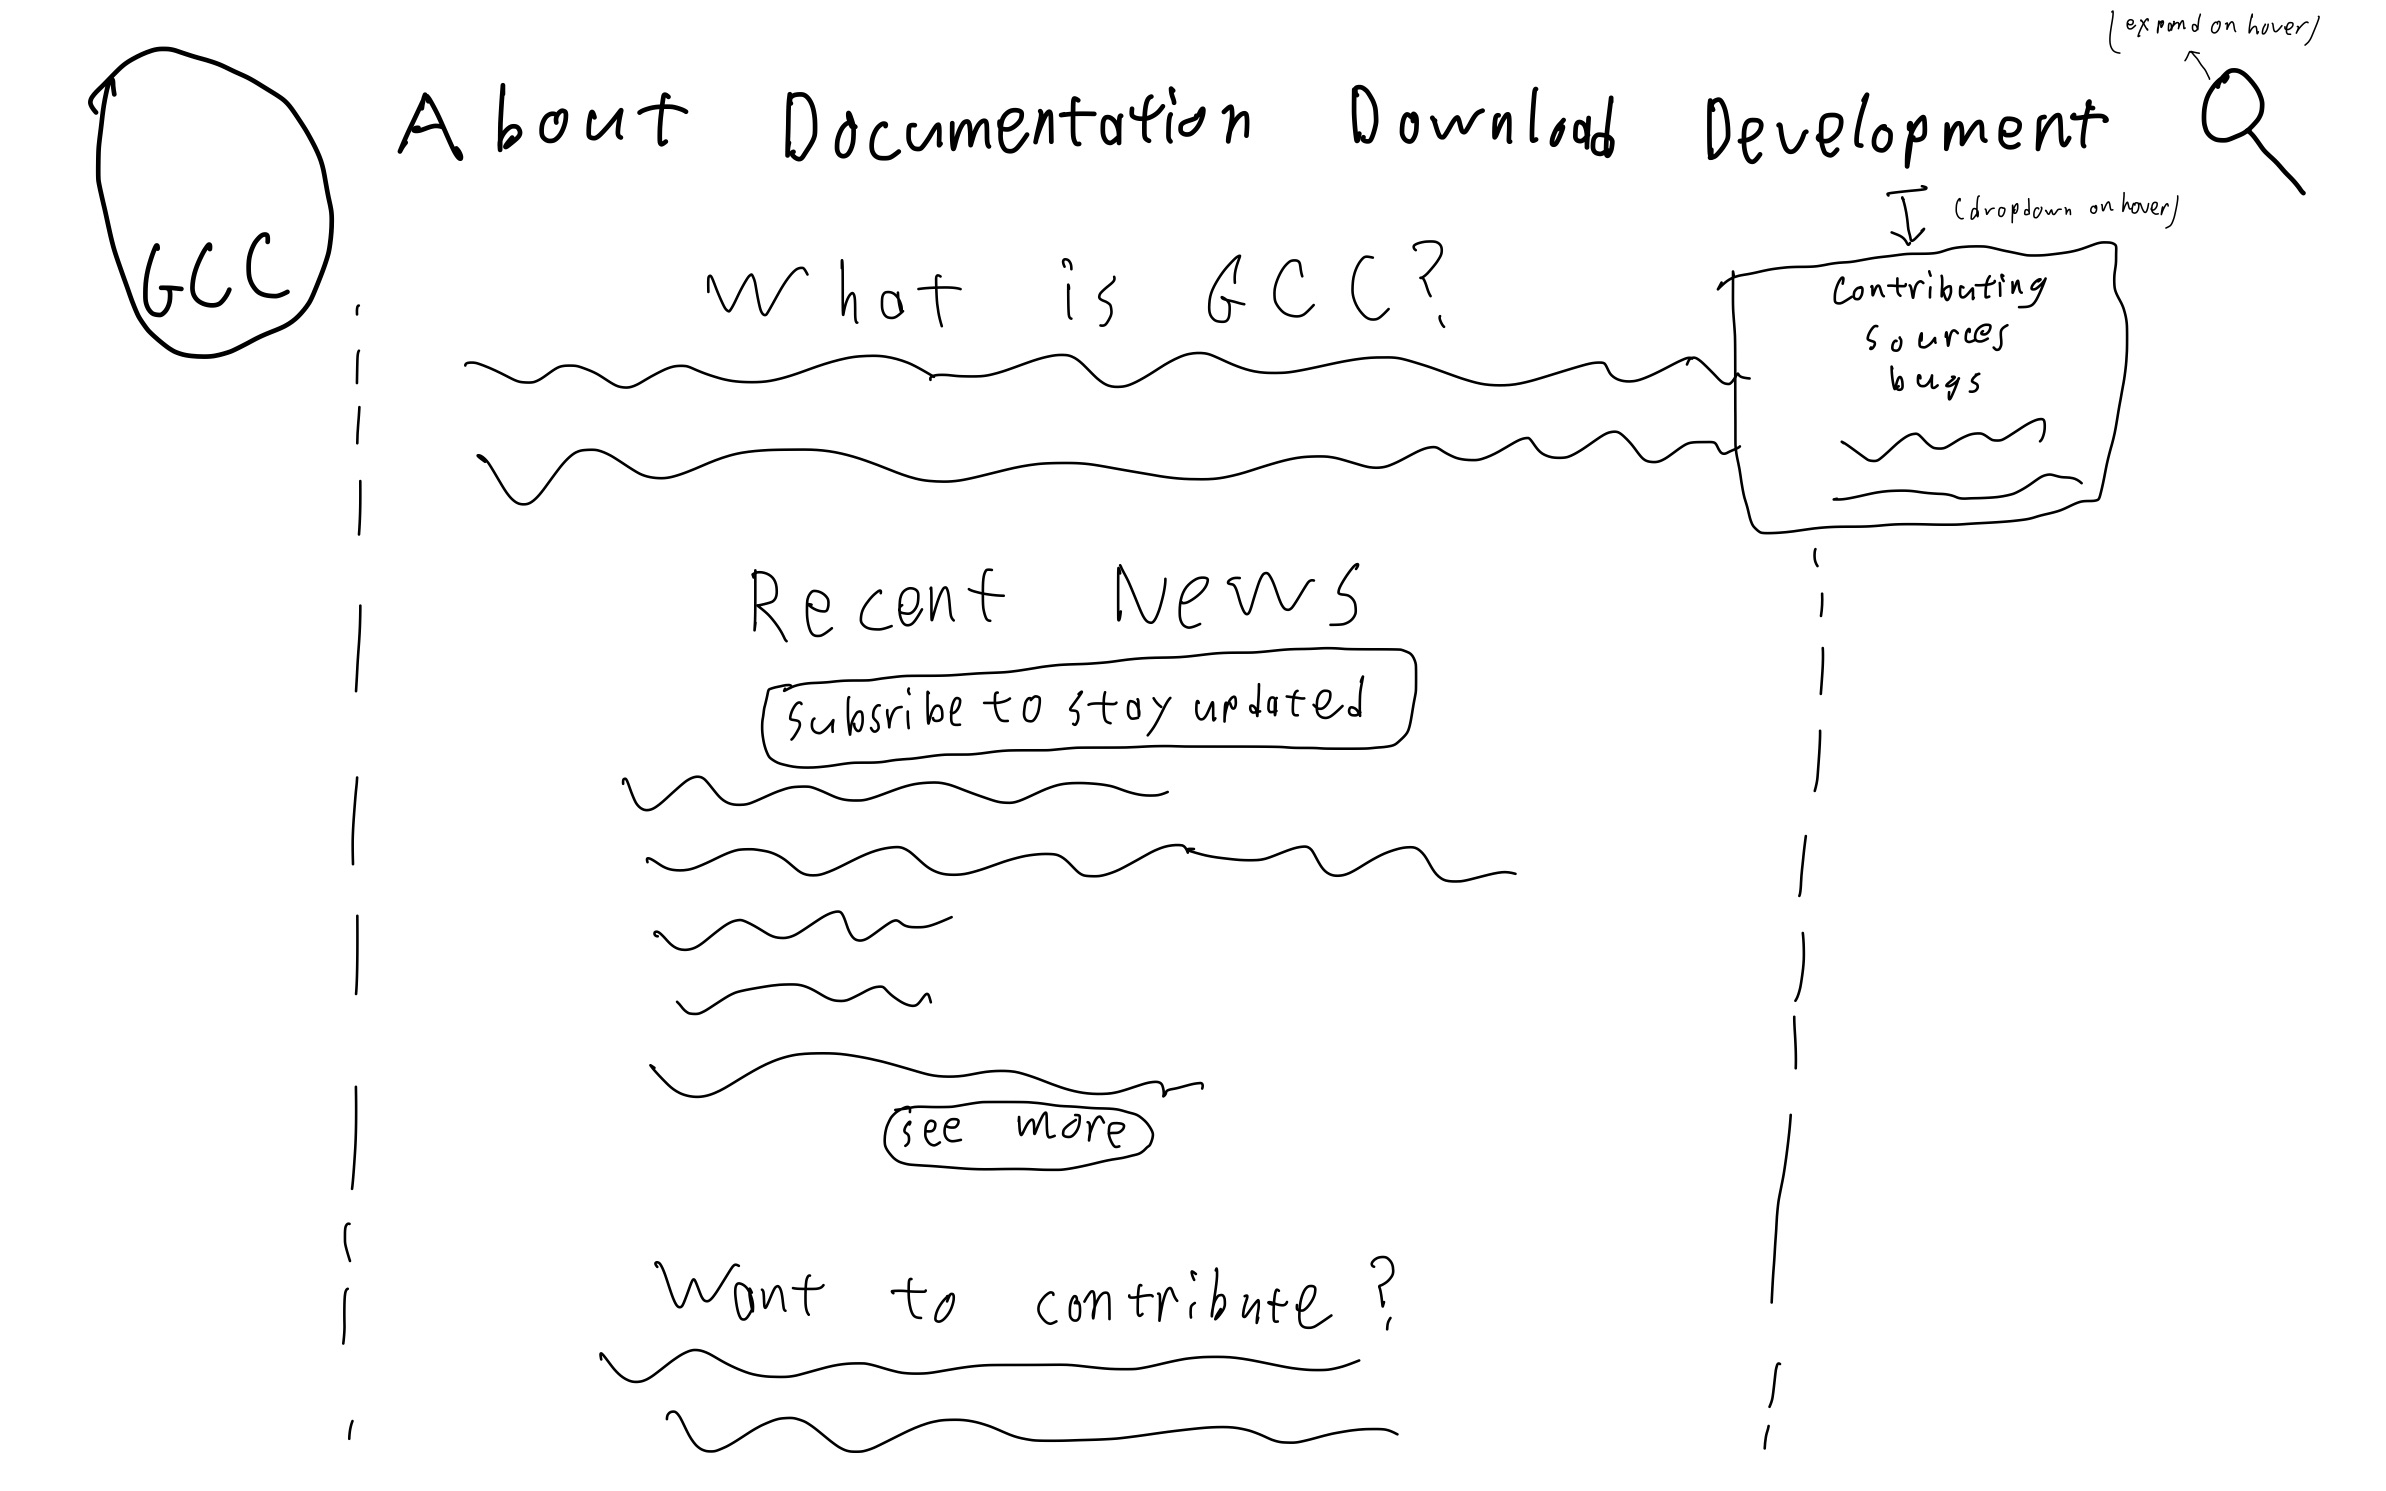 (expand on hover)
GCC
About Documentation Download Development
(dropdown on hover)
What is GCC?
Contributing
sources
bugs
Recent News
subsribe to stay updated
see more
Want to contribute?